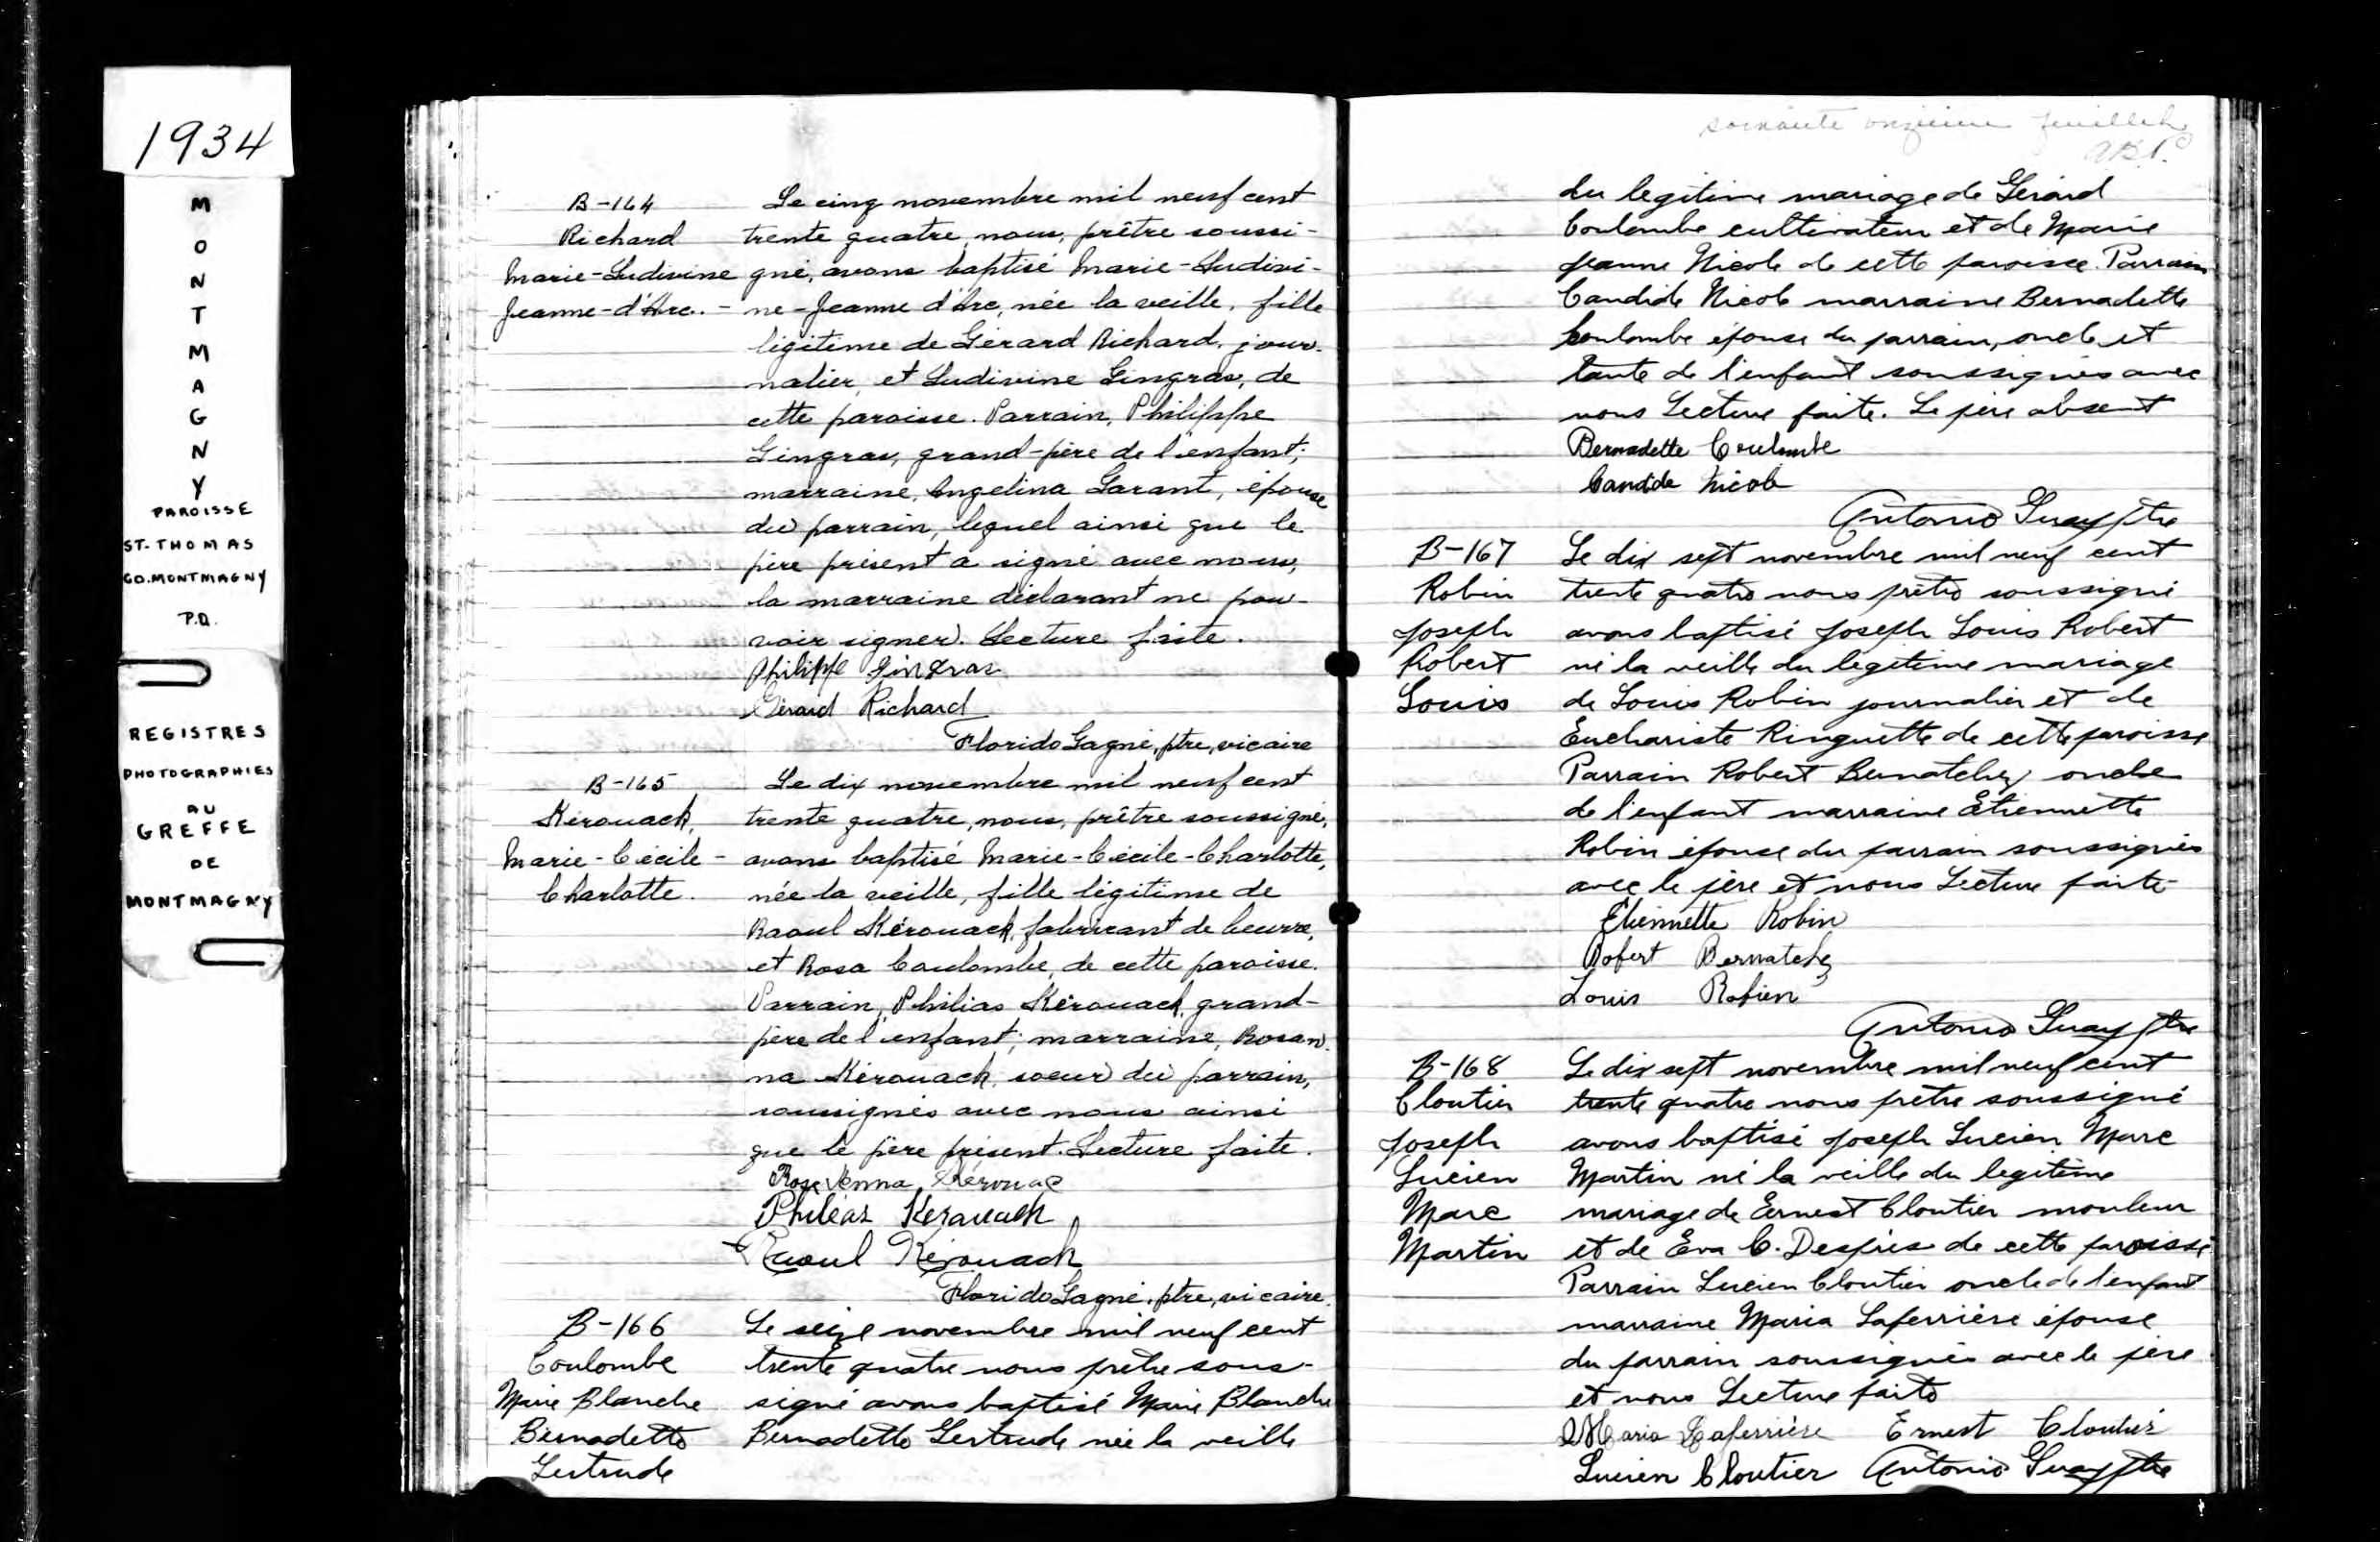 1934
M
O
N
T
M
A
G
N
Y
PAROISSE
ST-THOMAS
CO.MONTMAGNY
P.Q.
REGISTRES
PHOTOGRAPHIES
AU
GREFFE
DE
MONTMAGNY
B-164
Richard
Marie-Ludivine
Jeanne-d'Arc. -
Le cinq novembre mil neuf cent
trente quatre, nous, prêtre soussi-
gné, avons baptisé Marie-Ludivi-
ne-Jeanne d'Arc, née la veille, fille
légitime de Gérard Richard, jour-
nalier, et Ludivine Gingras, de
cette paroisse. Parrain, Philippe
Gingras, grand-père de l'enfant;
marraine, Angelina Garant, épouse
du parrain, lequel ainsi que le
père présent a signé avec nous,
la marraine déclarant ne pou-
voir signer. Lecture faite.
Philippe Gingras
Gérard Richard
Florido Gagné, ptre, vicaire
B-165
Kérouack,
Marie-Cécile-
Charlotte.
Le dix novembre mil neuf cent
trente quatre, nous, prêtre soussigné,
avons baptisé Marie-Cécile-Charlotte,
née la veille, fille légitime de
Raoul Kérouack, fabricant de beurre,
et Rosa Coulombe, de cette paroisse.
Parrain, Philias Kérouack, grand-
père de l'enfant; marraine, Rosan-
na Kérouack, soeur du parrain,
soussignés avec nous ainsi
que le père présent. Lecture faite.
Kérouac
Philéas Kérouack
Raoul Kérouack
Florido Gagné, ptre, vicaire.
B-166
Coulombe
Marie Blanche
Bernadette
Gertrude
Le seize novembre mil neuf cent
trente quatre nous prêtre sous-
signé avons baptisé Marie Blanche
Bernadette Gertrude née la veille
soixante onzième feuillet
du legitime mariage de Gérard
Coulombe cultivateur et de Marie
Jeanne Nicole de cette paroisse. Parrain
Candide Nicole marraine Bernadette
Coulombe épouse du parrain, oncle et
tante de l'enfant soussignés avec
nous Lecture faite. Le père absent
Bernadette Coulombe
Candide Nicole
Antonio Guay ptre
B-167
Robin
Joseph
Robert
Louis
Le dix sept novembre mil neuf cent
trente quatre nous prêtre soussigné
avons baptisé Joseph Louis Robert
né la veille du legitime mariage
de Louis Robin journalier et de
Euchariste Ringuette de cette paroisse
Parrain Robert Bernatchez oncle
de l'enfant marraine Etiennette
Robin épouse du parrain soussignés
avec le père et nous Lecture faite
Etiennette Robin
Robert Bernatchez
Louis Robin
Antonio Guay ptre
B-168
Cloutier
Joseph
Lucien
Marc
Martin
Le dix sept novembre mil neuf cent
trente quatre nous prêtre soussigné
avons baptisé Joseph Lucien Marc
Martin né la veille du legitime
mariage de Ernest Cloutier mouleur
et de Eva C. Després de cette paroisse
Parrain Lucien Cloutier oncle de l'enfant
marraine Maria Laferrière épouse
du parrain soussignés avec le père
et nous Lecture faite
Maria Laferrière Ernest Cloutier
Lucien Cloutier Antonio Guay ptre